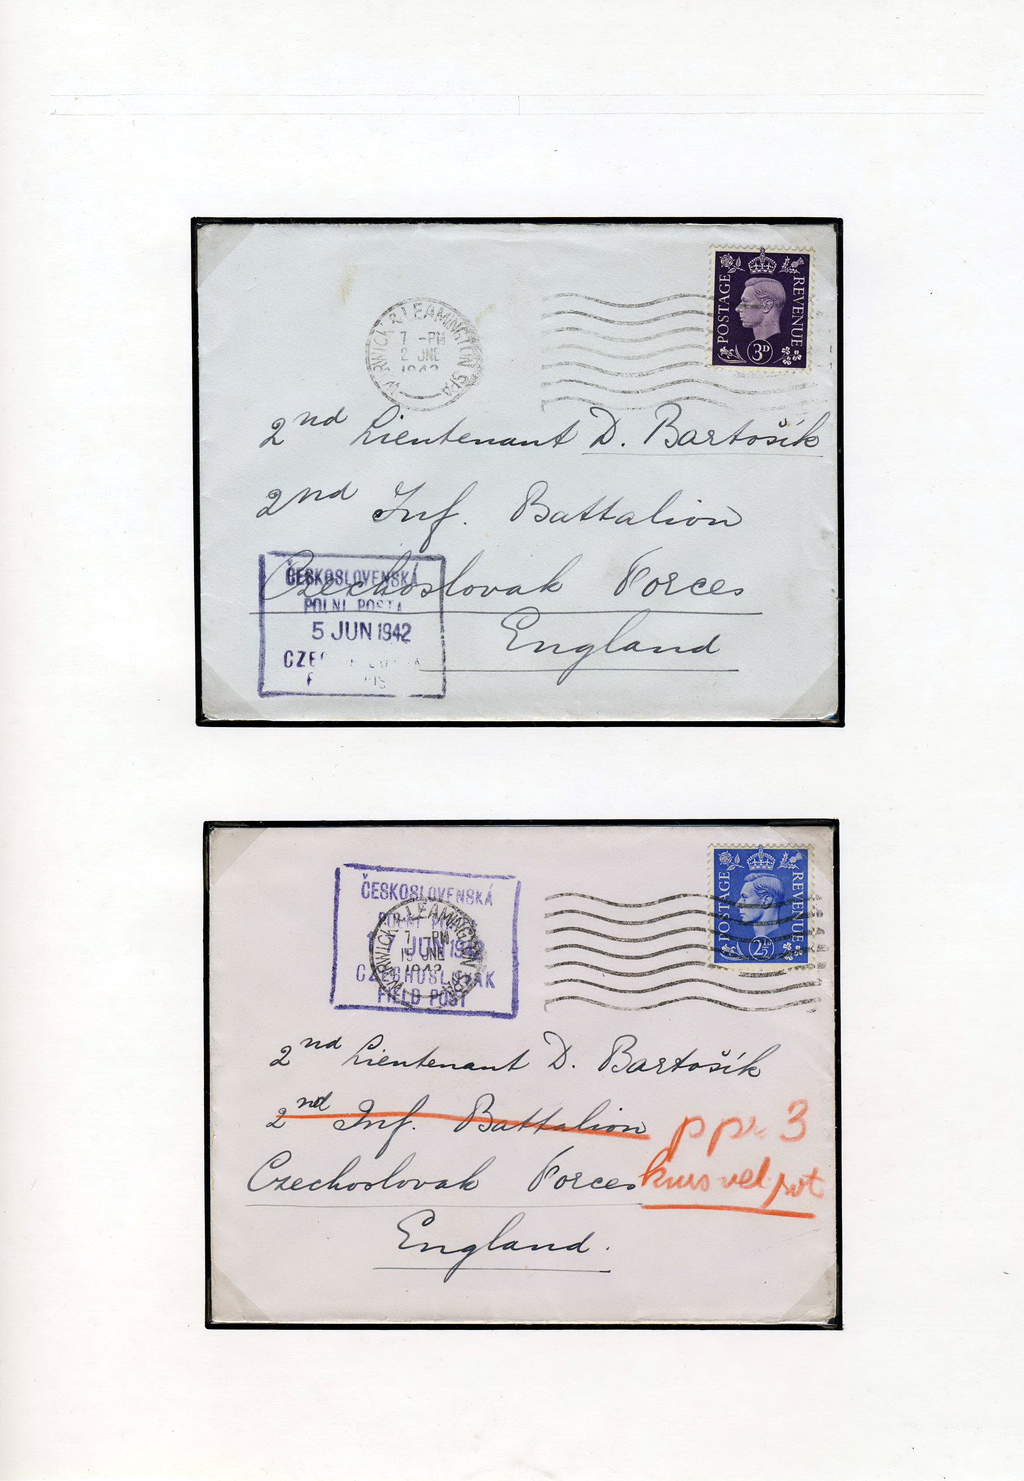 POSTAGE REVENUE
3D
WARWICK & LEAMINGTON SPA
7 - PM
2 JNE
1942
2nd Lieutenant D. Bartošík
2nd Inf. Battalion
Czechoslovak Forces
England
ČESKOSLOVENSKÁ
POLNÍ POŠTA
5 JUN 1942
POSTAGE REVENUE
2½D
ČESKOSLOVENSKÁ
JUN 1942
CZECHOSLOVAK
FIELD POST
WARWICK & LEAMINGTON SPA
7 - PM
15 JNE
1942
2nd Lieutenant D. Bartošík
2nd Inf. Battalion
pp. 3
Czechoslovak Forces kurs vel rot
England.